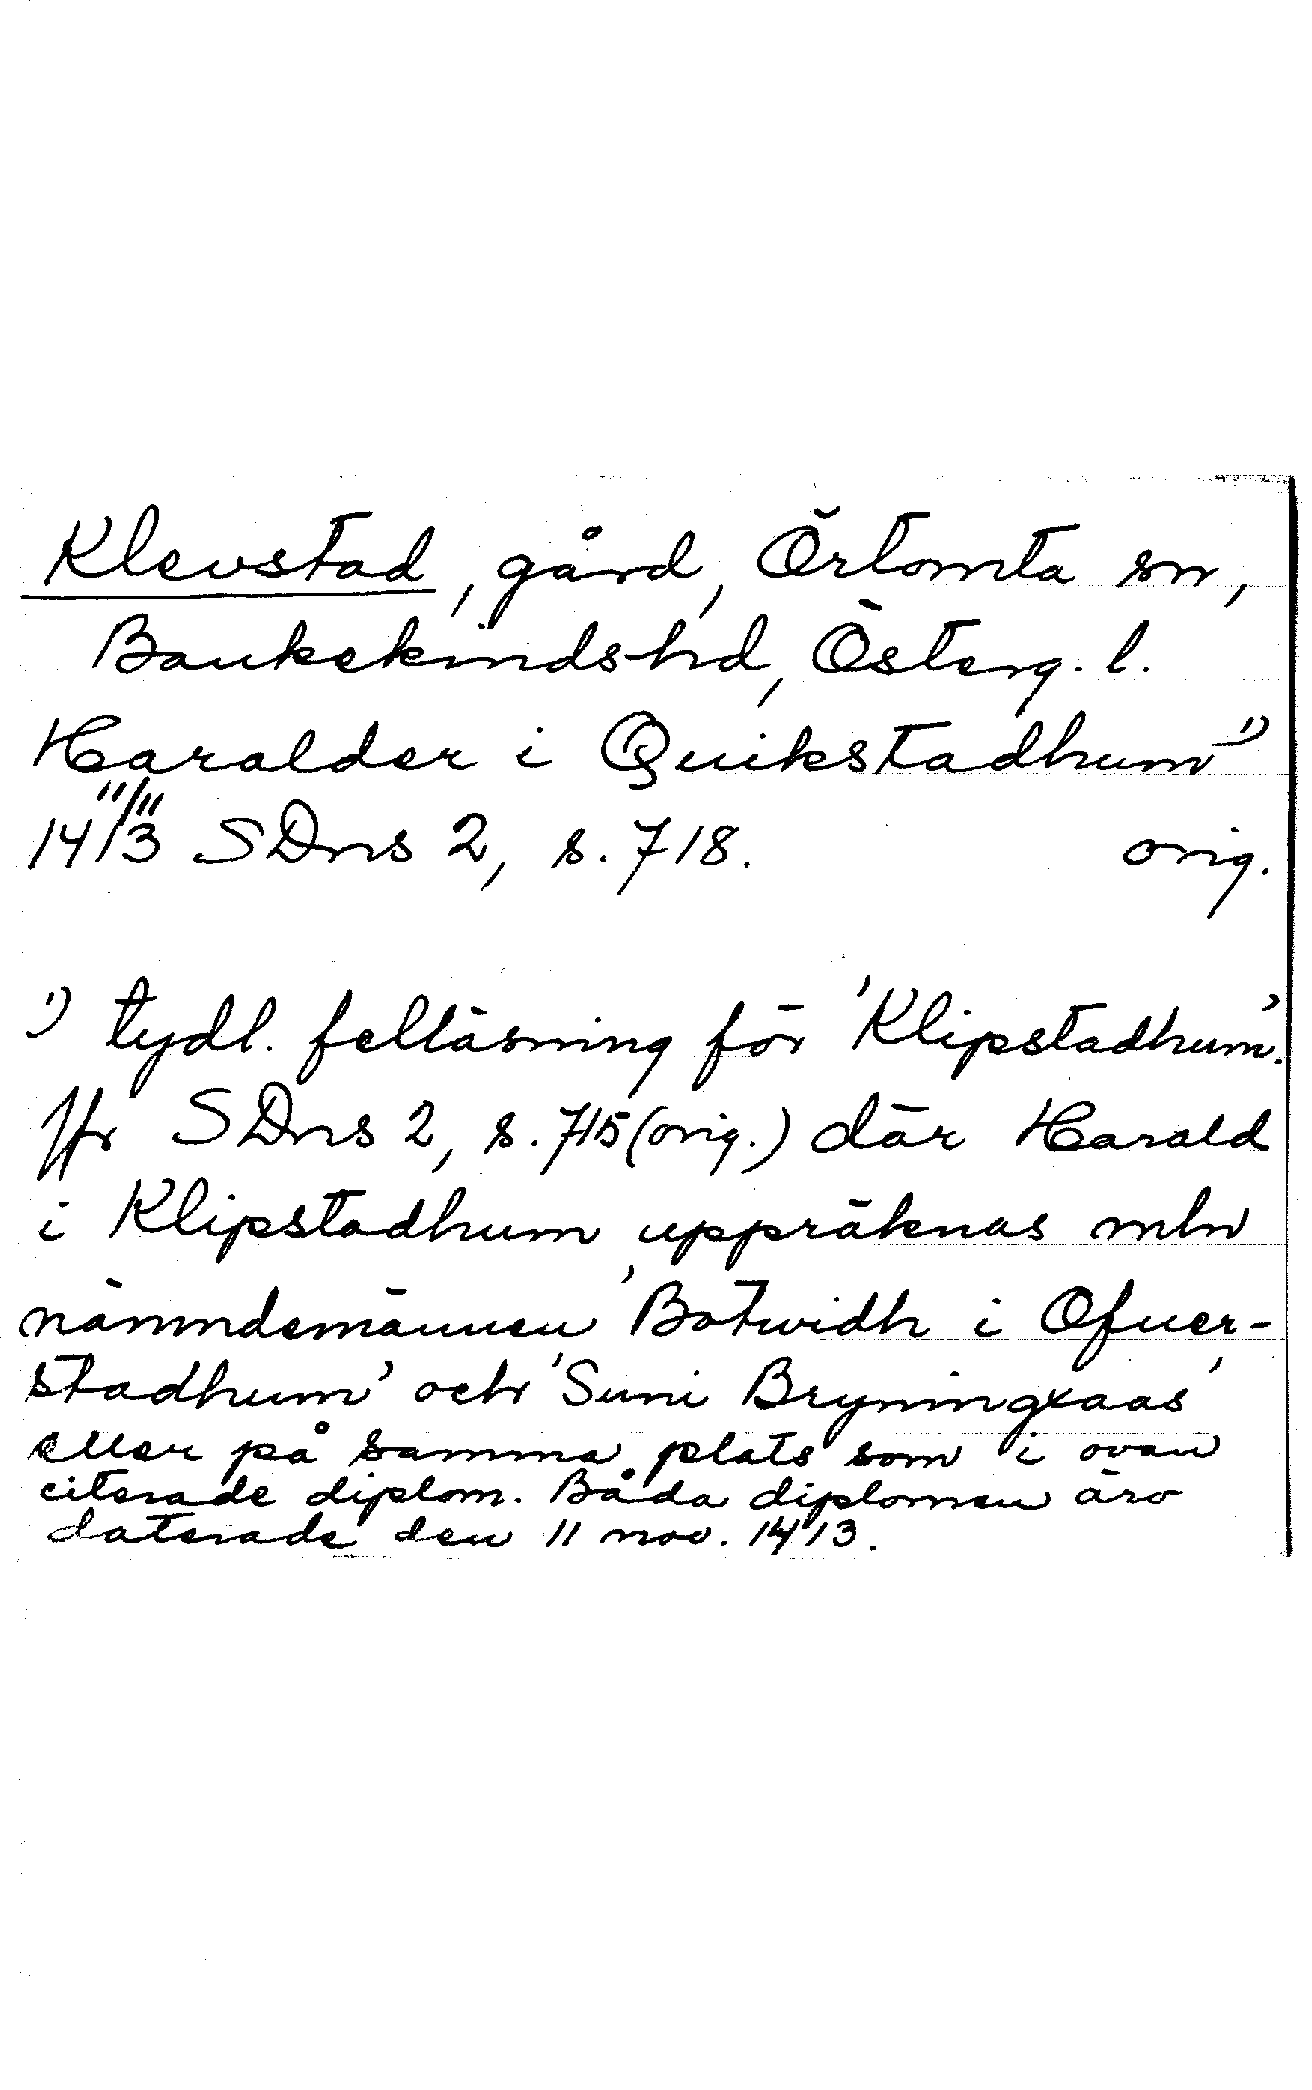 Klevstad, gård, Örtomta sn,
Bankekinds hd, Österg. l.
Haralder i Quikstadhum 1)
14 11/11 13 SDns 2, s. 718. orig.
1) tydl. felläsning för 'Klipstadhum'.
Jfr SDns 2, s. 715 (orig.) där Harald
i Klipstadhum uppräknas mln
nämndemännen 'Botwidh i Ofuer-
stadhum' och 'Suni Bryningxaas'
eller på samma plats som i ovan
citerade diplom. Båda diplomen äro
daterade den 11 nov. 1413.